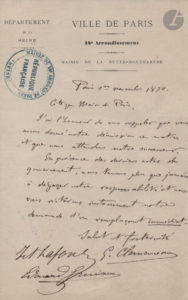 DÉPARTEMENT
DE LA
SEINE
VILLE DE PARIS
18e Arrondissement
MAIRIE DE LA BUTTE-MONTMARTRE
RÉPUBLIQUE FRANÇAISE
Paris 1er novembre 1870.
Citoyen Maire de Paris,
J'ai l'honneur de vous rappeler que vous
avez notre démission et
que nous attendons notre successeur.
En présence des derniers actes du
gouvernement, nous tenons plus que jamais à
dégager notre responsabilité, et nous
vous réitérons instamment notre
demande d'un remplaçant immédiat.
Salut et fraternité
G. Clemenceau